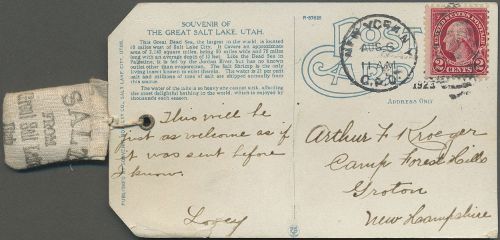 SOUVENIR OF
THE GREAT SALT LAKE, UTAH.
This Great Dead Sea, the largest in the world, is located
18 miles west of Salt Lake City. It covers an area
of 2,140 square miles, being 90 miles wide and 70 miles
long with an average depth of 30 feet.
Niagara, it is fed by the Jordan River but has no known
outlet other than evaporation. The Salt Shrimp is the only
living insect known to exist therein. The water is 22 per cent
salt and millions of tons of salt are scraped annually from
this natural
The water of the Lake is so heavy one cannot sink, affecting
the most delightful bathing in the world, which is enjoyed by
thousands each season.
This will be
just as welcome as if
it was sent before
I know.
Loxey
SALT
POST
CARD
NEW YORK, N.Y.
AUG 6
11 AM
G.P.O.
1923
2 CENTS 2
ADDRESS ONLY
Arthur F. Kroeger
Camp Forest Hills
Groton
New Hampshire